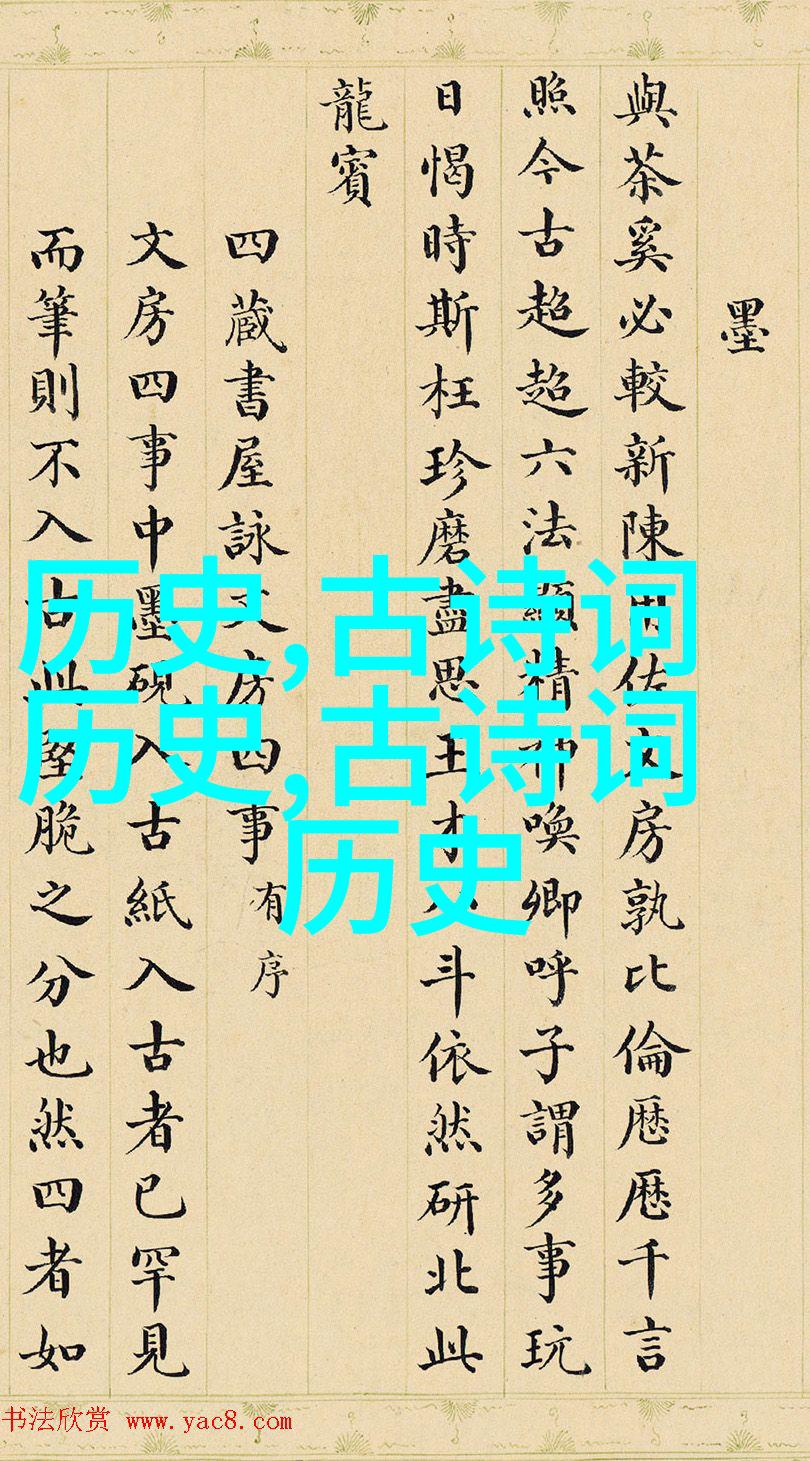 墨
與茶奚必較新陳用佐文房孰比倫厯厯千言
照今古超超六法顯精神喚卿呼子謂多事玩
日愒時斯枉珍磨盡思王才八斗依然研北此
龍賓
四蔵書屋詠文房四事有序
文房四事中墨硯入古紙入古者已罕見
而筆則不入古此堅脆之分也然四者如
历史,古诗词
历史,古诗词
历史
书法欣赏 www.yac8.com